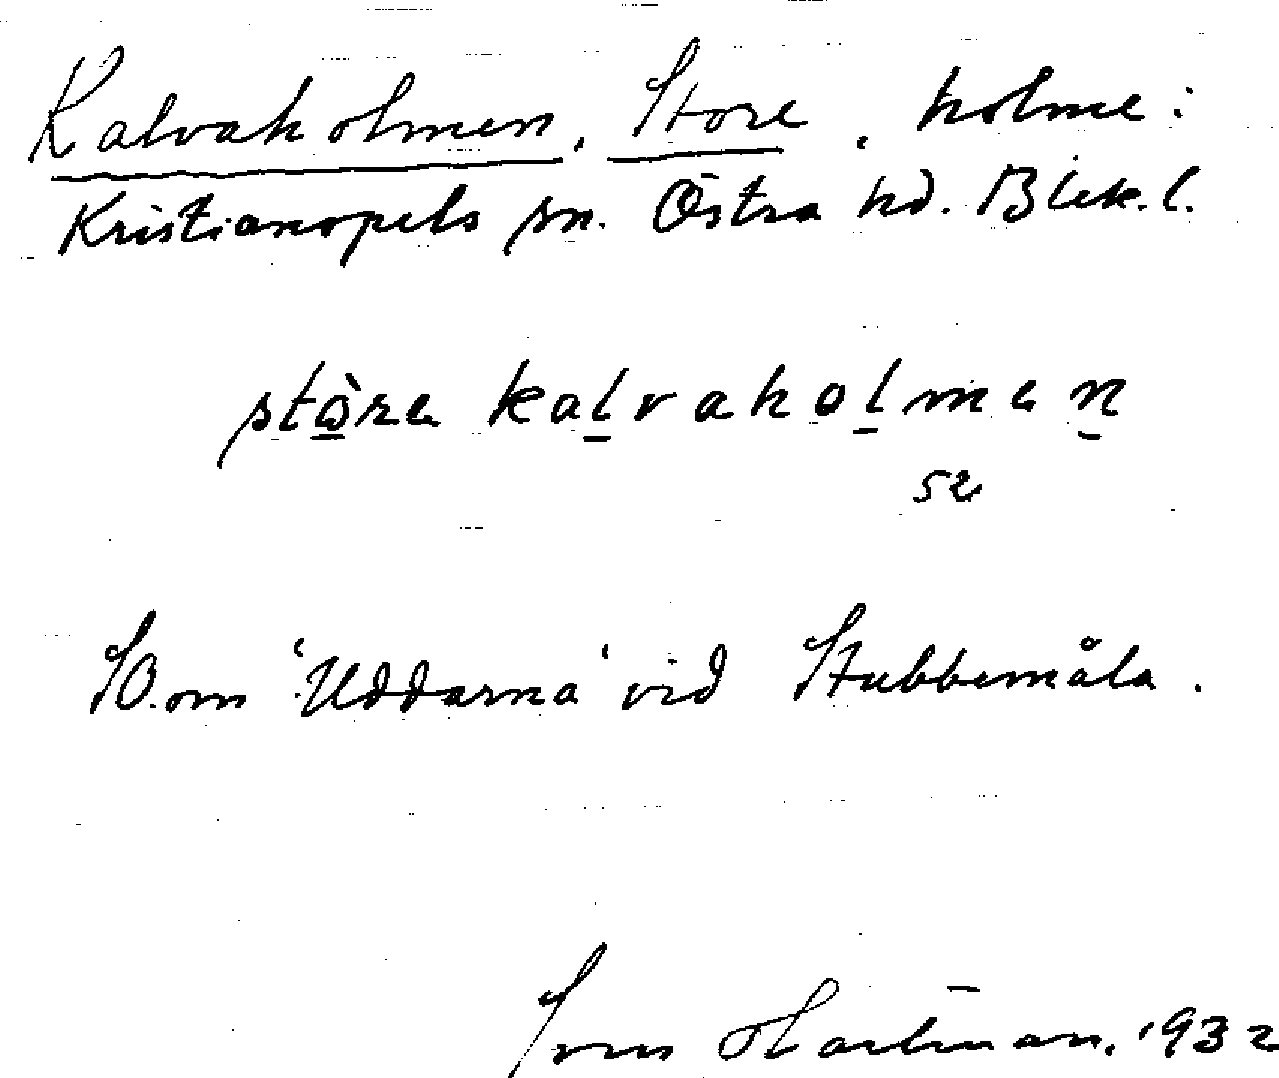 Kalvaholmen, Store, holme:
Kristianopels sn. Östra hd. Blek.l.
stòre kalvaholmen
52
SO.om 'Uddarna' vid Stubbemåla.
Sven Hartman. 1932